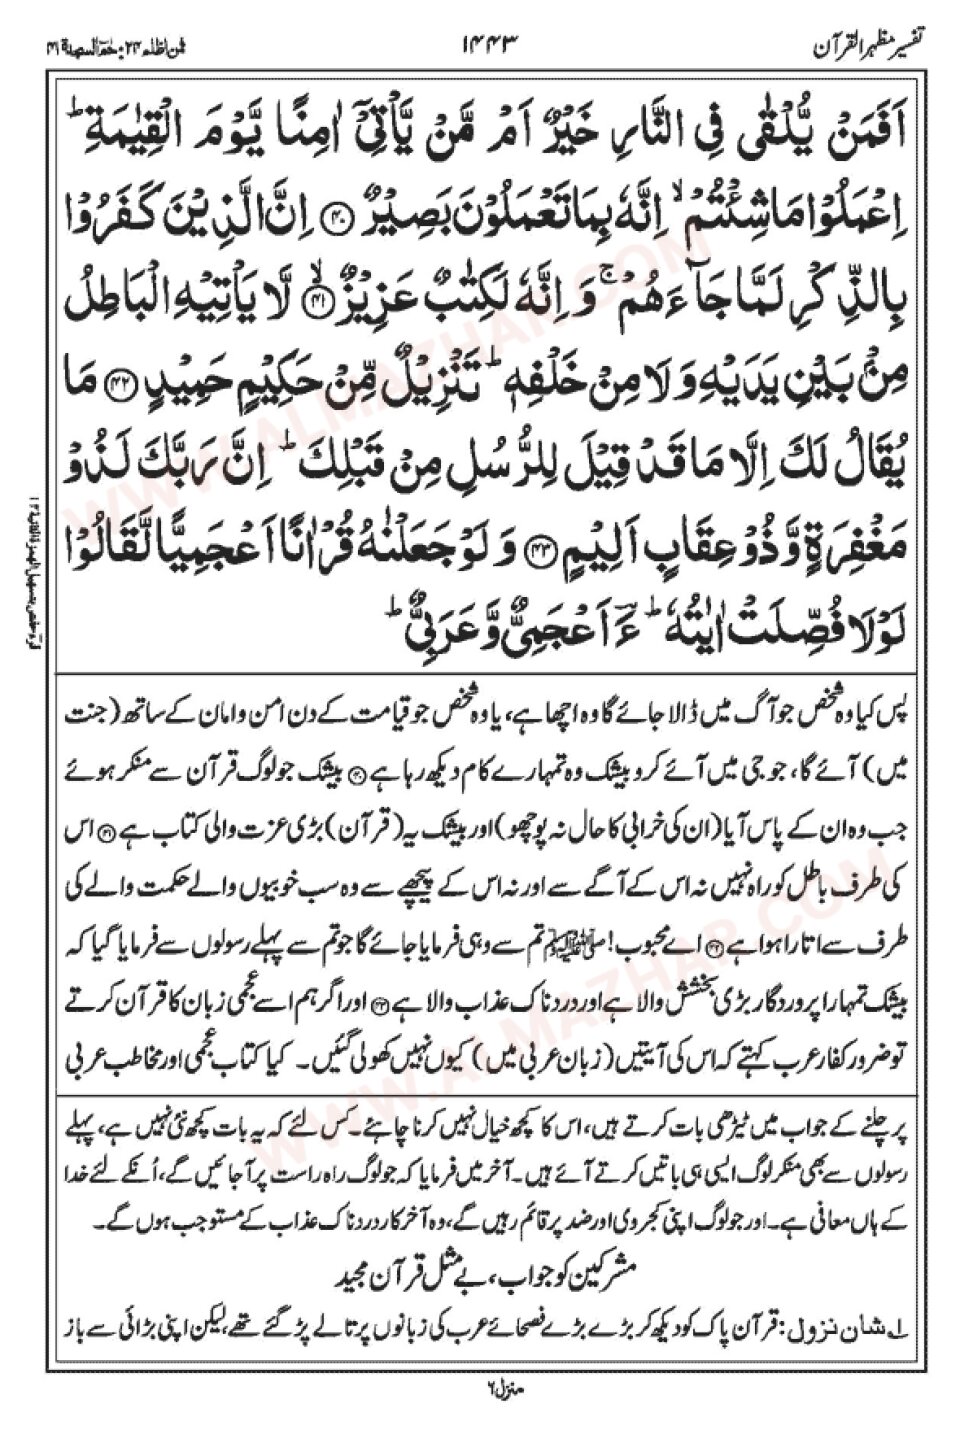 تفسیر مظہر القرآن
۱۴۴۳
فمن اظلم ۲۴: حٰمٓ السجدۃ ۴۱
اَفَمَنْ يُّلْقٰى فِى النَّارِ خَيْرٌ اَمْ مَّنْ يَّاْتِىْٓ اٰمِنًا يَّوْمَ الْقِيٰمَةِ ؕ
اِعْمَلُوْا مَا شِئْتُمْ ۙ اِنَّهٗ بِمَا تَعْمَلُوْنَ بَصِيْرٌ ﴿۴۰﴾ اِنَّ الَّذِيْنَ كَفَرُوْا
بِالذِّكْرِ لَمَّا جَآءَهُمْ ۚ وَ اِنَّهٗ لَكِتٰبٌ عَزِيْزٌ ﴿۴۱﴾ ۙ لَّا يَاْتِيْهِ الْبَاطِلُ
مِنْۢ بَيْنِ يَدَيْهِ وَلَا مِنْ خَلْفِهٖ ؕ تَنْزِيْلٌ مِّنْ حَكِيْمٍ حَمِيْدٍ ﴿۴۲﴾ مَا
يُقَالُ لَكَ اِلَّا مَا قَدْ قِيْلَ لِلرُّسُلِ مِنْ قَبْلِكَ ؕ اِنَّ رَبَّكَ لَذُوْ
مَغْفِرَةٍ وَّ ذُوْ عِقَابٍ اَلِيْمٍ ﴿۴۳﴾ وَ لَوْ جَعَلْنٰهُ قُرْاٰنًا اَعْجَمِيًّا لَّقَالُوْا
لَوْلَا فُصِّلَتْ اٰيٰتُهٗ ؕ ءَؔاَعْجَمِىٌّ وَّ عَرَبِىٌّ ؕ
پس کیا وہ شخص جو آگ میں ڈالا جائے گا وہ اچھا ہے، یا وہ شخص جو قیامت کے دن امن و امان کے ساتھ (جنت
میں) آئے گا، جو جی میں آئے کرو بیشک وہ تمہارے کام دیکھ رہا ہے ﴿۴۰﴾ بیشک جو لوگ قرآن سے منکر ہوئے
جب وہ ان کے پاس آیا (ان کی خرابی کا حال نہ پوچھو) اور بیشک یہ (قرآن) بڑی عزت والی کتاب ہے ﴿۴۱﴾ اس
کی طرف باطل کو راہ نہیں نہ اس کے آگے سے اور نہ اس کے پیچھے سے وہ سب خوبیوں والے حکمت والے کی
طرف سے اتارا ہوا ہے ﴿۴۲﴾ اے محبوب! ﷺ تم سے وہی فرمایا جائے گا جو تم سے پہلے رسولوں سے فرمایا گیا کہ
بیشک تمہارا پروردگار بڑی بخشش والا ہے اور دردناک عذاب والا ہے ﴿۴۳﴾ اور اگر ہم اسے عجمی زبان کا قرآن کرتے
تو ضرور کفار عرب کہتے کہ اس کی آیتیں (زبان عربی میں) کیوں نہیں کھولی گئیں۔ کیا کتاب عجمی اور مخاطب عربی
پر چلنے کے جواب میں ٹیڑھی بات کرتے ہیں، اس کا کچھ خیال نہیں کرنا چاہئے۔ کس لئے کہ یہ بات کچھ نئی نہیں ہے، پہلے
رسولوں سے بھی منکر لوگ ایسی ہی باتیں کرتے آئے ہیں۔ آخر میں فرمایا کہ جو لوگ راہ راست پر آجائیں گے، اُنکے لئے خدا
کے ہاں معافی ہے۔ اور جو لوگ اپنی کجروی اور ضد پر قائم رہیں گے، وہ آخر کار دردناک عذاب کے مستوجب ہوں گے۔
مشرکین کو جواب، بے مثل قرآن مجید
۱۔ شان نزول: قرآن پاک کو دیکھ کر بڑے بڑے فصحائے عرب کی زبانوں پر تالے پڑ گئے تھے، لیکن اپنی بڑائی سے باز
منزل ۶
WWW.ALMAZHAR.COM
WWW.ALMAZHAR.COM